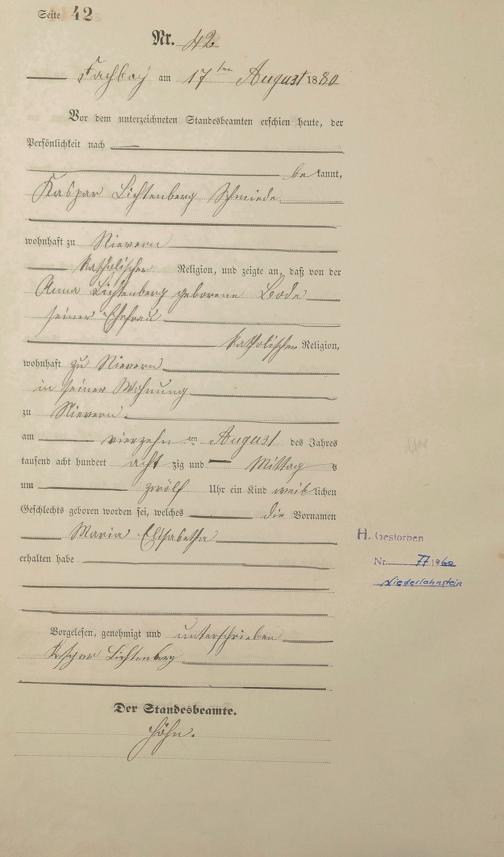 Seite 42
Nr. 42
Fachbach am 17ten August 1880
Vor dem unterzeichneten Standesbeamten erschien heute, der
Persönlichkeit nach
be kannt,
Kaspar Lichtenberg Schmiede
wohnhaft zu Nievern
katholischer Religion, und zeigte an, daß von der
Anna Lichtenberg geborene Bode
seiner Ehefrau
katholischer Religion,
wohnhaft zu Nievern
in seiner Wohnung
zu Nievern.
am vierzehn ten August des Jahres
tausend acht hundert acht zig und Mittag s
um zwölf Uhr ein Kind weib lichen
Geschlechts geboren worden sei, welches die Vornamen
Maria Elisabetha
erhalten habe
H. Gestorben
Nr. 77/1960
Niederlahnstein
Vorgelesen, genehmigt und unterschrieben
Kaspar Lichtenberg
Der Standesbeamte.
Höhn.